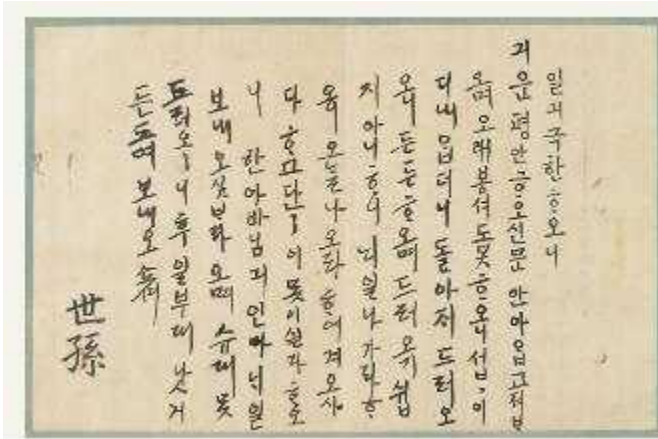 일긔 극한ᄒᆞ오니
긔운 평안ᄒᆞ오신 문안 아ᄋᆞᆸ고져 ᄇᆞ라
오며 오래 봉셔도 못 ᄒᆞ오니 섭〃이
디내ᄋᆞᆸ더니 돌아지 드러오
오니 든든ᄒᆞ오며 드러오기 쉽
지 아니ᄒᆞ니 ᄂᆡ일 나가라 ᄒᆞ
오니 오ᄂᆞᆯ 나오라 ᄒᆞ여 겨오시
다 ᄒᆞ고 단〃이 못 이실다 ᄒᆞ오
니 한아바님긔 인마 ᄂᆡ일
보내오심 ᄇᆞ라오며 슈대 못
드러오〃니 후일 부대 낫거
든 드려 보내오쇼셔
世孫